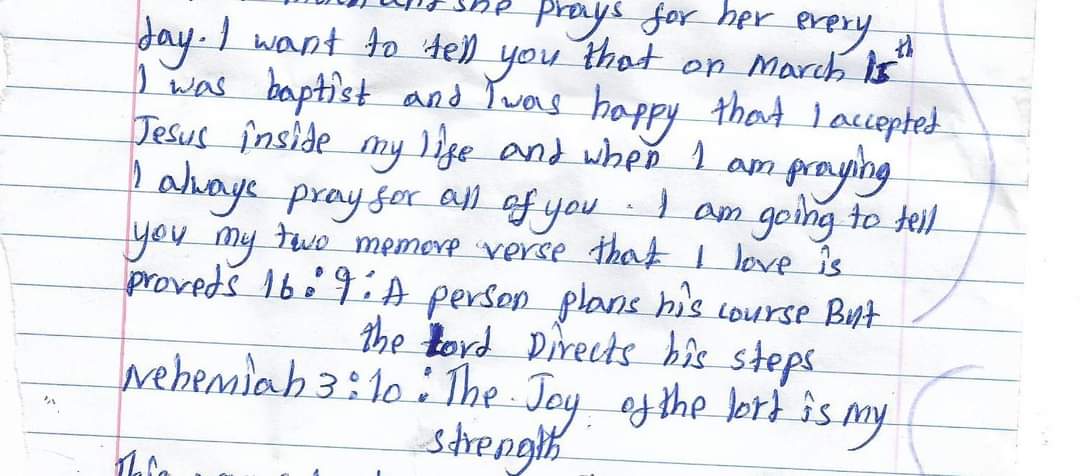 she prays for her every
day. I want to tell you that on March 15th
I was baptist and I was happy that I accepted
Jesus inside my life and when I am praying
I always pray for all of you. I am going to tell
you my two memore verse that I love is
proveds 16:9: A person plans his course But
the Lord Directs his steps
Nehemiah 3:10: The Joy of the lord is my
strength